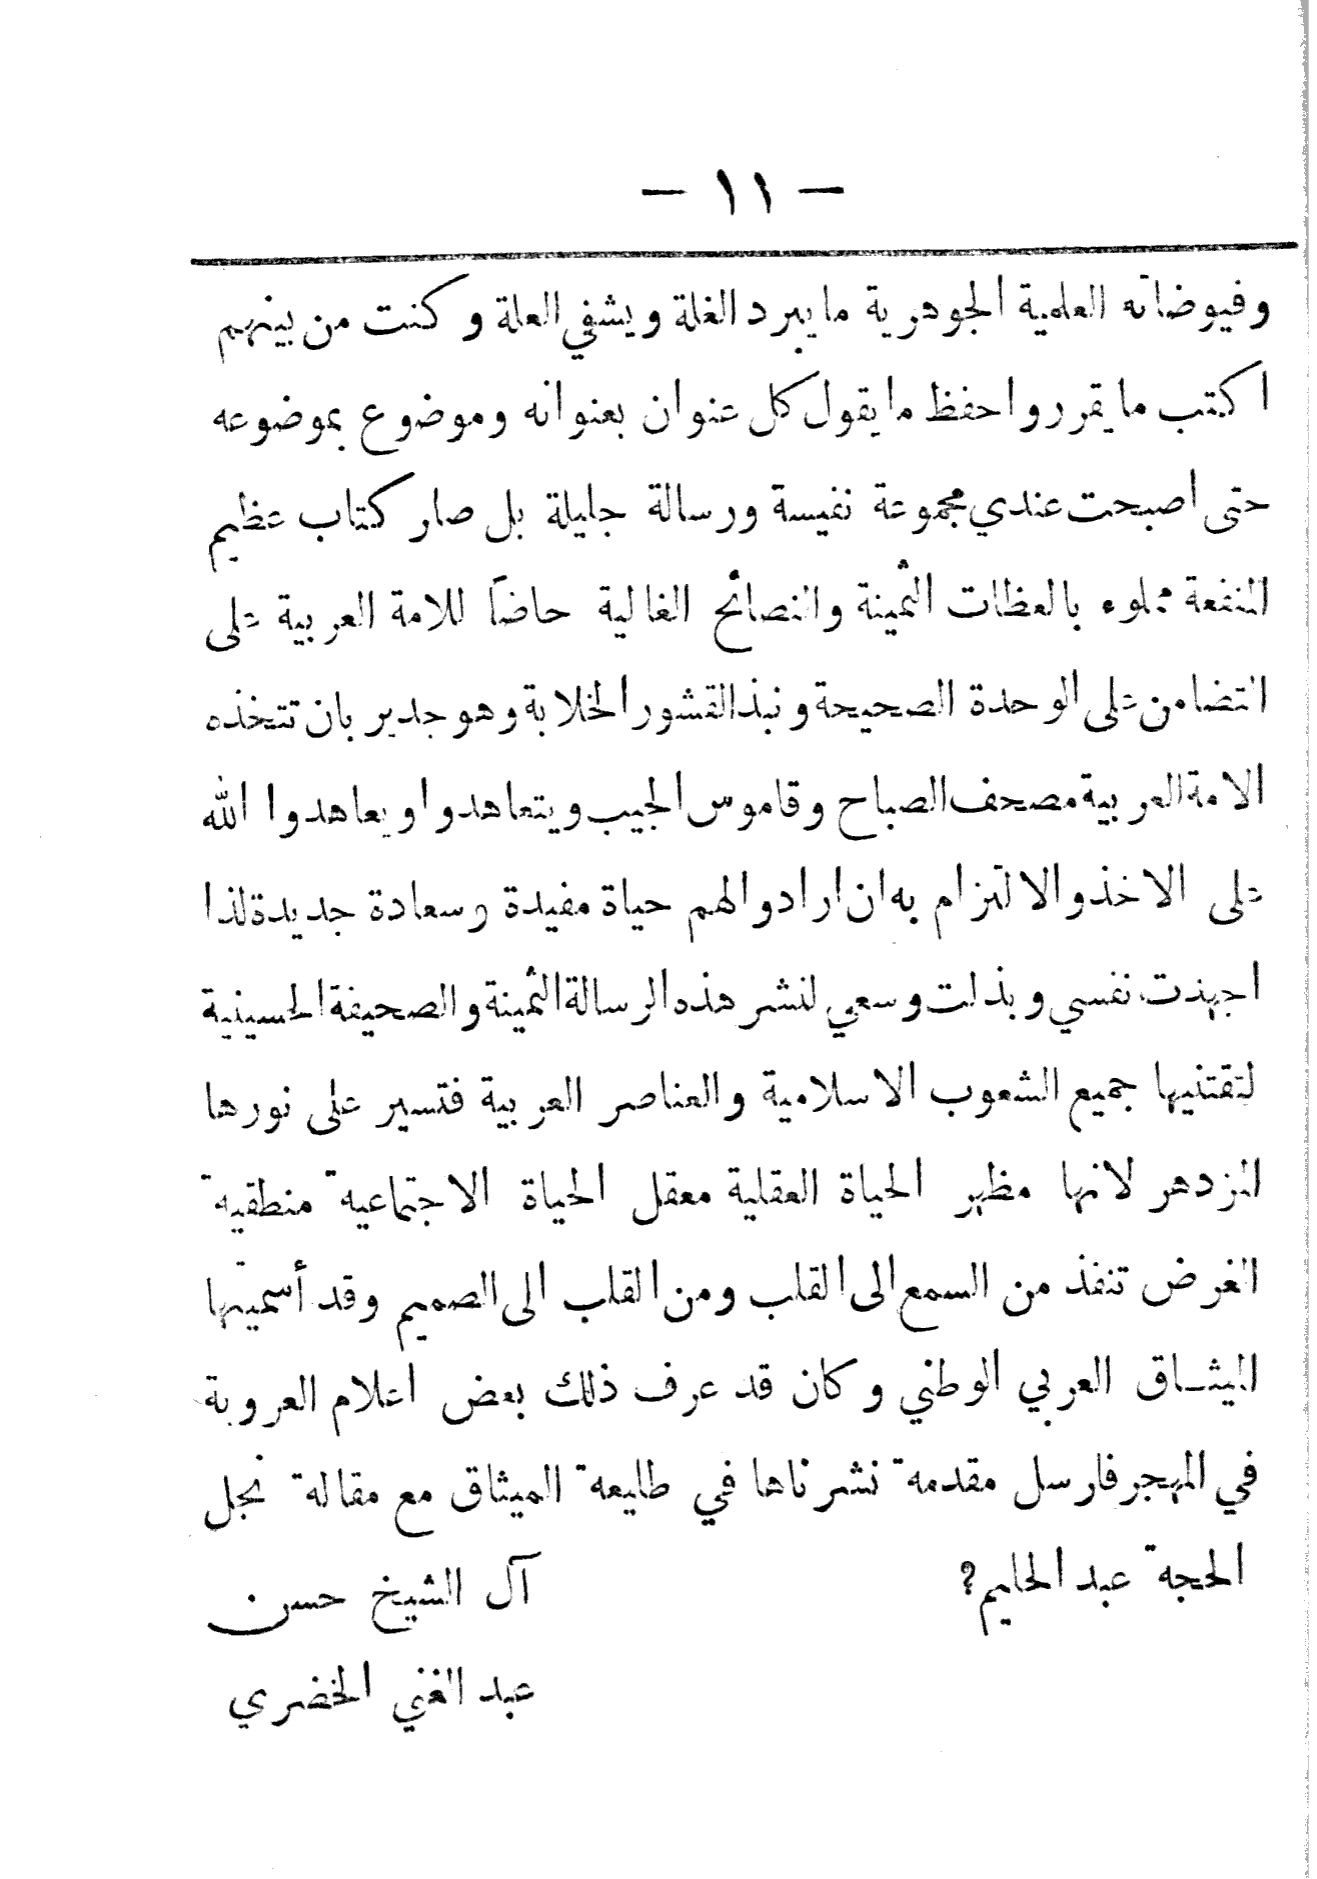 — ١١ —
وفيوضاته العلمية الجوهرية ما يبرد الغلة ويشفي العلة وكنت من بينهم
اكتب ما يقرر واحفظ ما يقول كل عنوان بعنوانه وموضوع بموضوعه
حتى اصبحت عندي مجموعة نفيسة ورسالة جليلة بل صار كتاب عظيم
المنفعة مملوء بالعظات الثمينة والنصائح الغالية حاضاً للامة العربية على
التضامن على الوحدة الصحيحة ونبذ القشور الخلابة وهو جدير بان تتخذه
الامة العربية مصحف الصباح وقاموس الجيب ويتعاهدوا ويعاهدوا الله
على الاخذ والالتزام به ان ارادوا لهم حياة مفيدة وسعادة جديدة لذا
اجهدت نفسي وبذلت وسعي لنشر هذه الرسالة الثمينة والصحيفة الحسينية
لتقتنيها جميع الشعوب الاسلامية والعناصر العربية فتسير على نورها
المزدهر لانها مظهر الحياة العقلية معقل الحياة الاجتماعية منطقية
الغرض تنفذ من السمع الى القلب ومن القلب الى الصميم وقد أسميتها
الميثــاق العربي الوطني وكان قد عرف ذلك بعض اعلام العروبة
في المهجر فارسل مقدمة نشرناها في طليعة الميثاق مع مقالة نجل
الحجة عبد الحليم؟ آل الشيخ حسن
عبد الغني الخضري